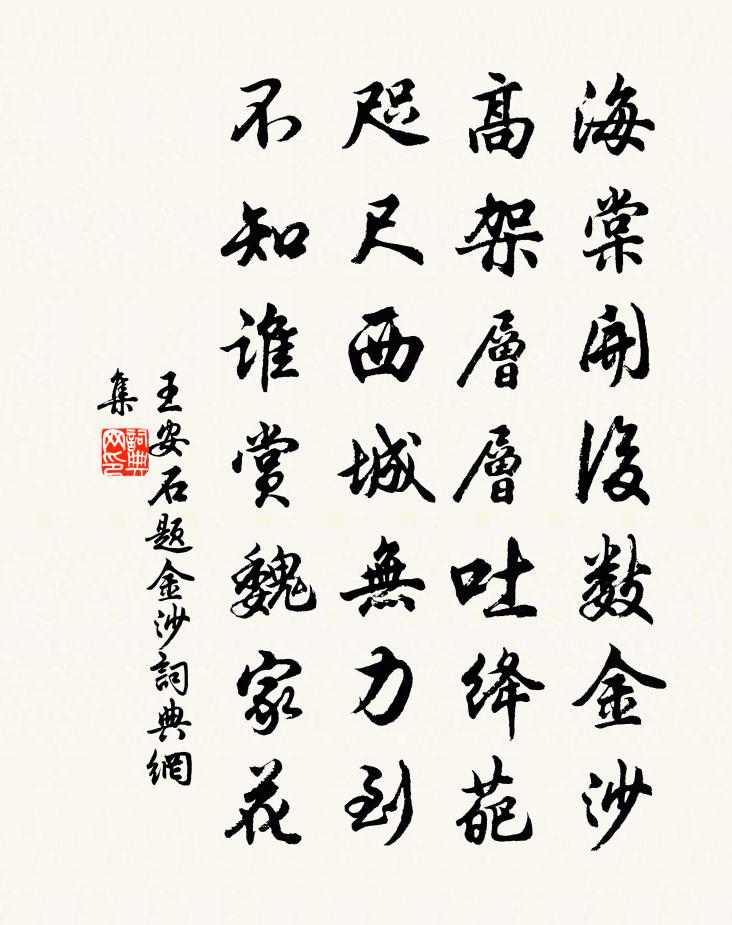 海棠開後數金沙
高架層層吐絳葩
咫尺西城無力到
不知誰賞魏家花
王安石题金沙詞典網
集
詞典网印